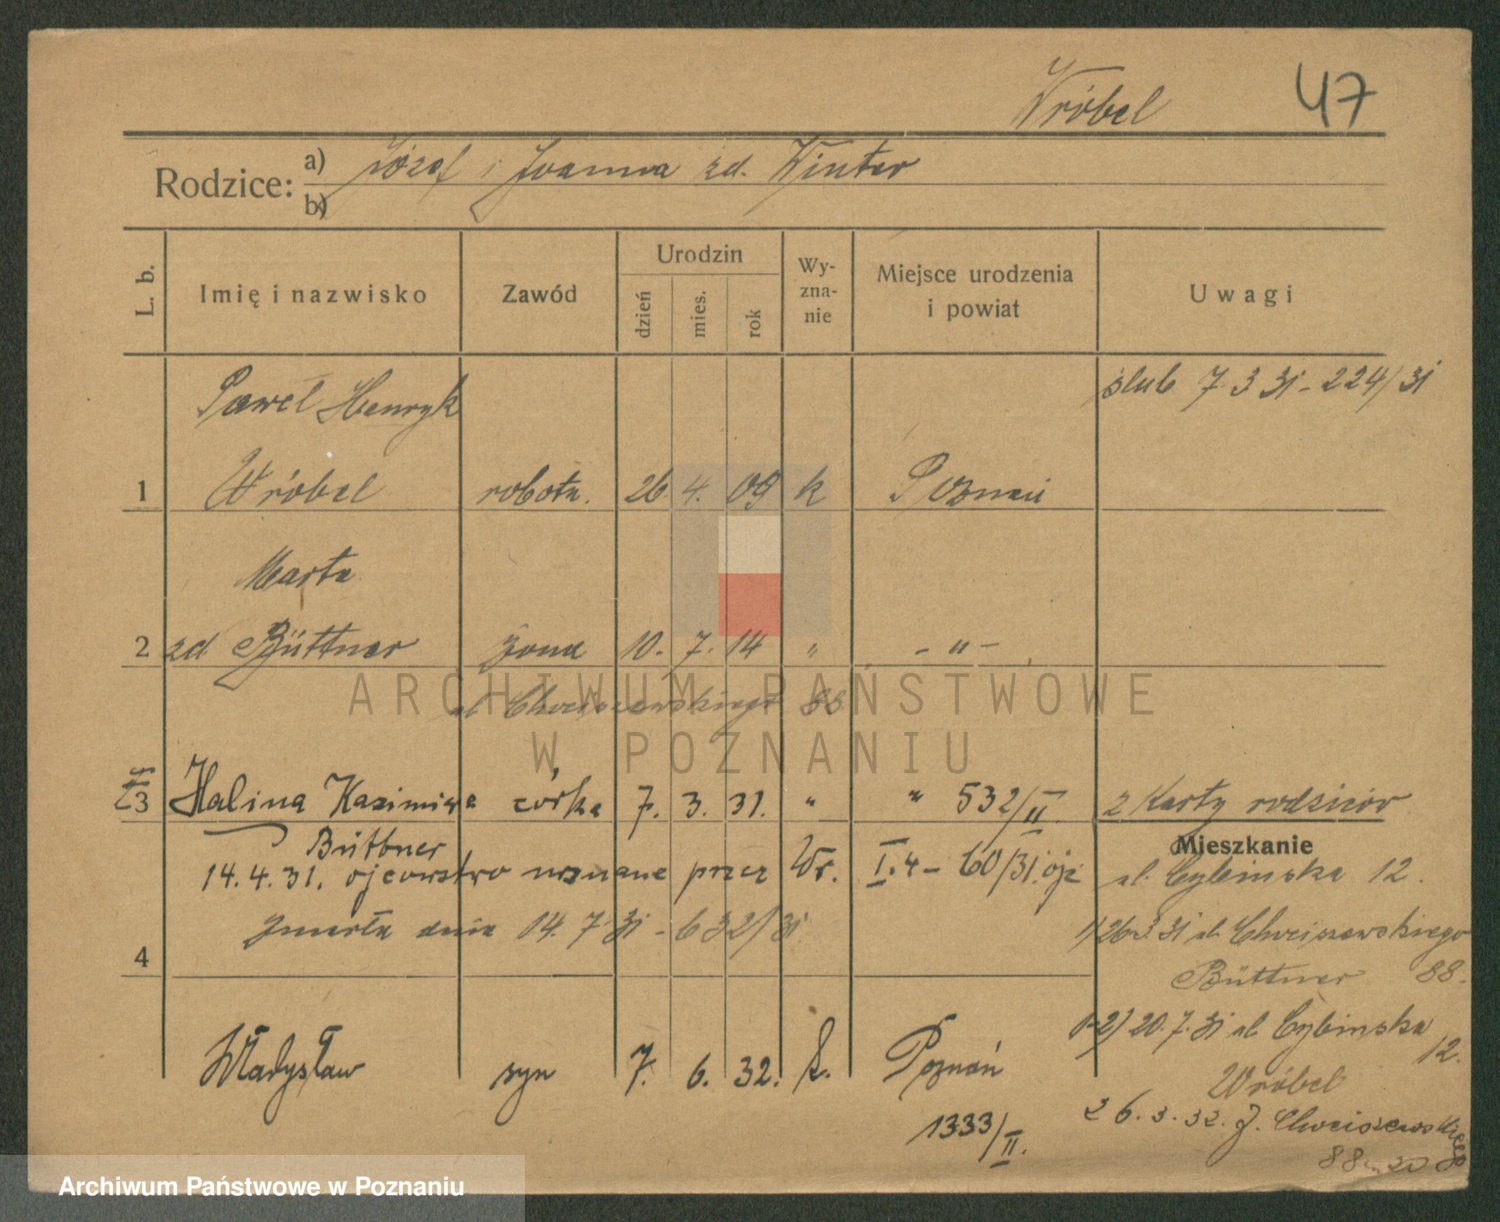 Wróbel 47
Rodzice: a) Józef i Joanna zd. Winter
b)
L. b. Imię i nazwisko Zawód Urodzin dzień mies. rok Wyznanie Miejsce urodzenia i powiat Uwagi
Paweł Henryk ślub 7 3 31 - 224/31
1 Wróbel robotn. 26 4. 09 k Poznań
Marta
2 zd Büttner żona 10. 7. 14 " - " -
ul Chociszewskiego 88
3 Halina Kazimiera córka 7. 3. 31. " " 532/II. z Karty rodziców
Büttner Mieszkanie
14. 4. 31. ojcowstwo uznane przez Wr. I. 4 - 60/31. ul. Cybińska 12.
zmarła dnia 14. 7 31 - 632/31 1/ 26 3 31 ul. Chociszewskiego
4 Büttner 88.
1-2/ 20. 7. 31 ul Cybińska 12.
Władysław syn 7. 6. 32. k. Poznań Wróbel
1333/II. 26. 3. 32. Chociszewskiego
88
ARCHIWUM PAŃSTWOWE
W POZNANIU
Archiwum Państwowe w Poznaniu